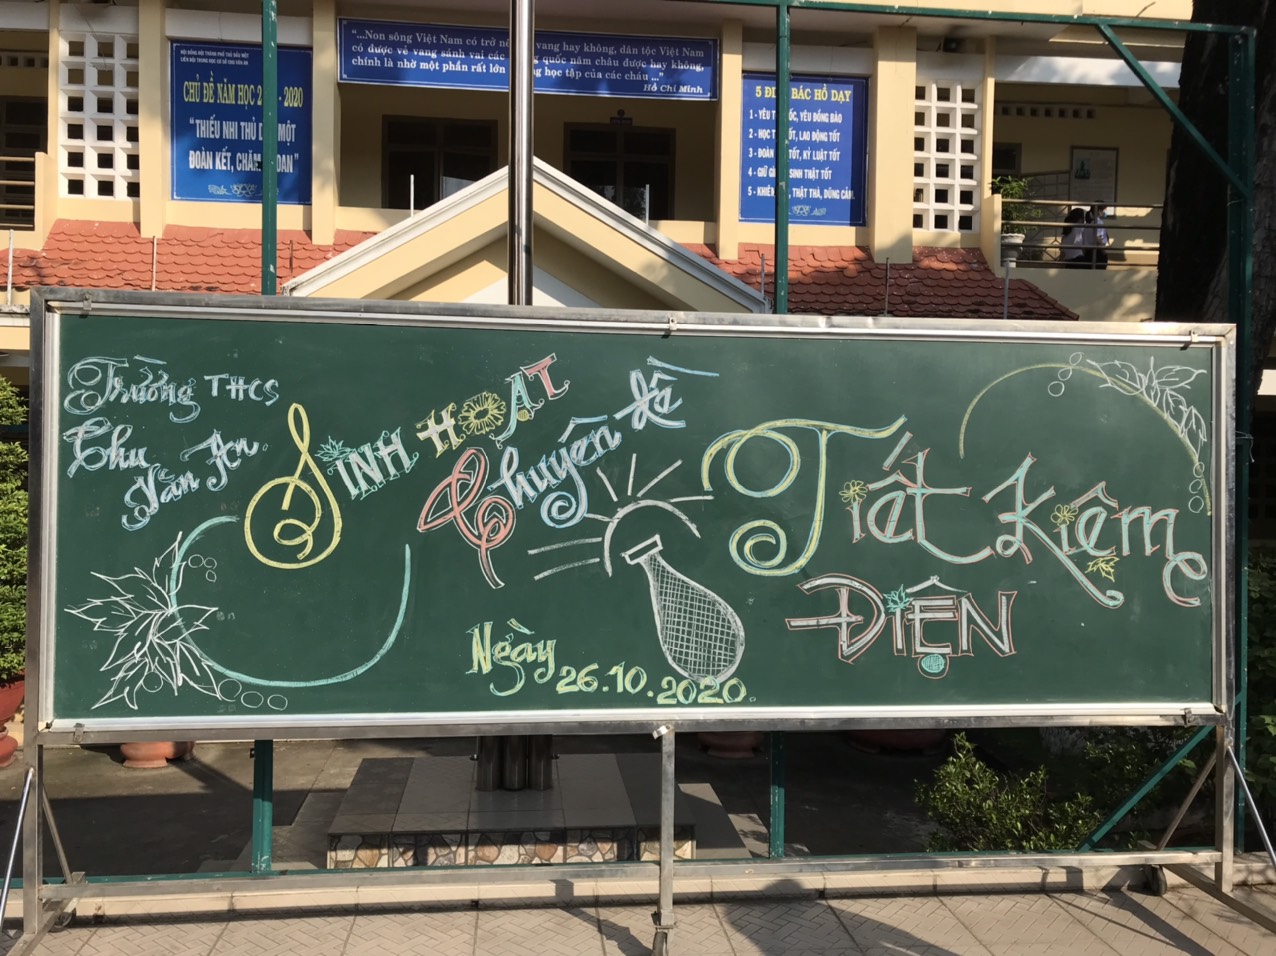 HỘI ĐỒNG ĐỘI THÀNH PHỐ THỦ DẦU MỘT
LIÊN ĐỘI TRUNG HỌC CƠ SỞ CHU VĂN AN
CHỦ ĐỀ NĂM HỌC 2 - 2020
"THIẾU NHI THỦ D MỘT
ĐOÀN KẾT, CHĂM OAN"
"...Non sông Việt Nam có trở n vang hay không, dân tộc Việt Nam
có được vẻ vang sánh vai các quốc năm châu được hay không,
chính là nhờ một phần rất lớn học tập của các cháu..."
Hồ Chí Minh
5 ĐI BÁC HỒ DẠY
1 - YÊU T ỐC, YÊU ĐỒNG BÀO
2 - HỌC T ỐT, LAO ĐỘNG TỐT
3 - ĐOÀN TỐT, KỶ LUẬT TỐT
4 - GIỮ G SINH THẬT TỐT
5 - KHIÊM , THẬT THÀ, DŨNG CẢM
Trường THCS
Chu Văn An
SINH HOẠT
Chuyên đề
Tiết Kiệm
ĐIỆN
Ngày 26.10.2020